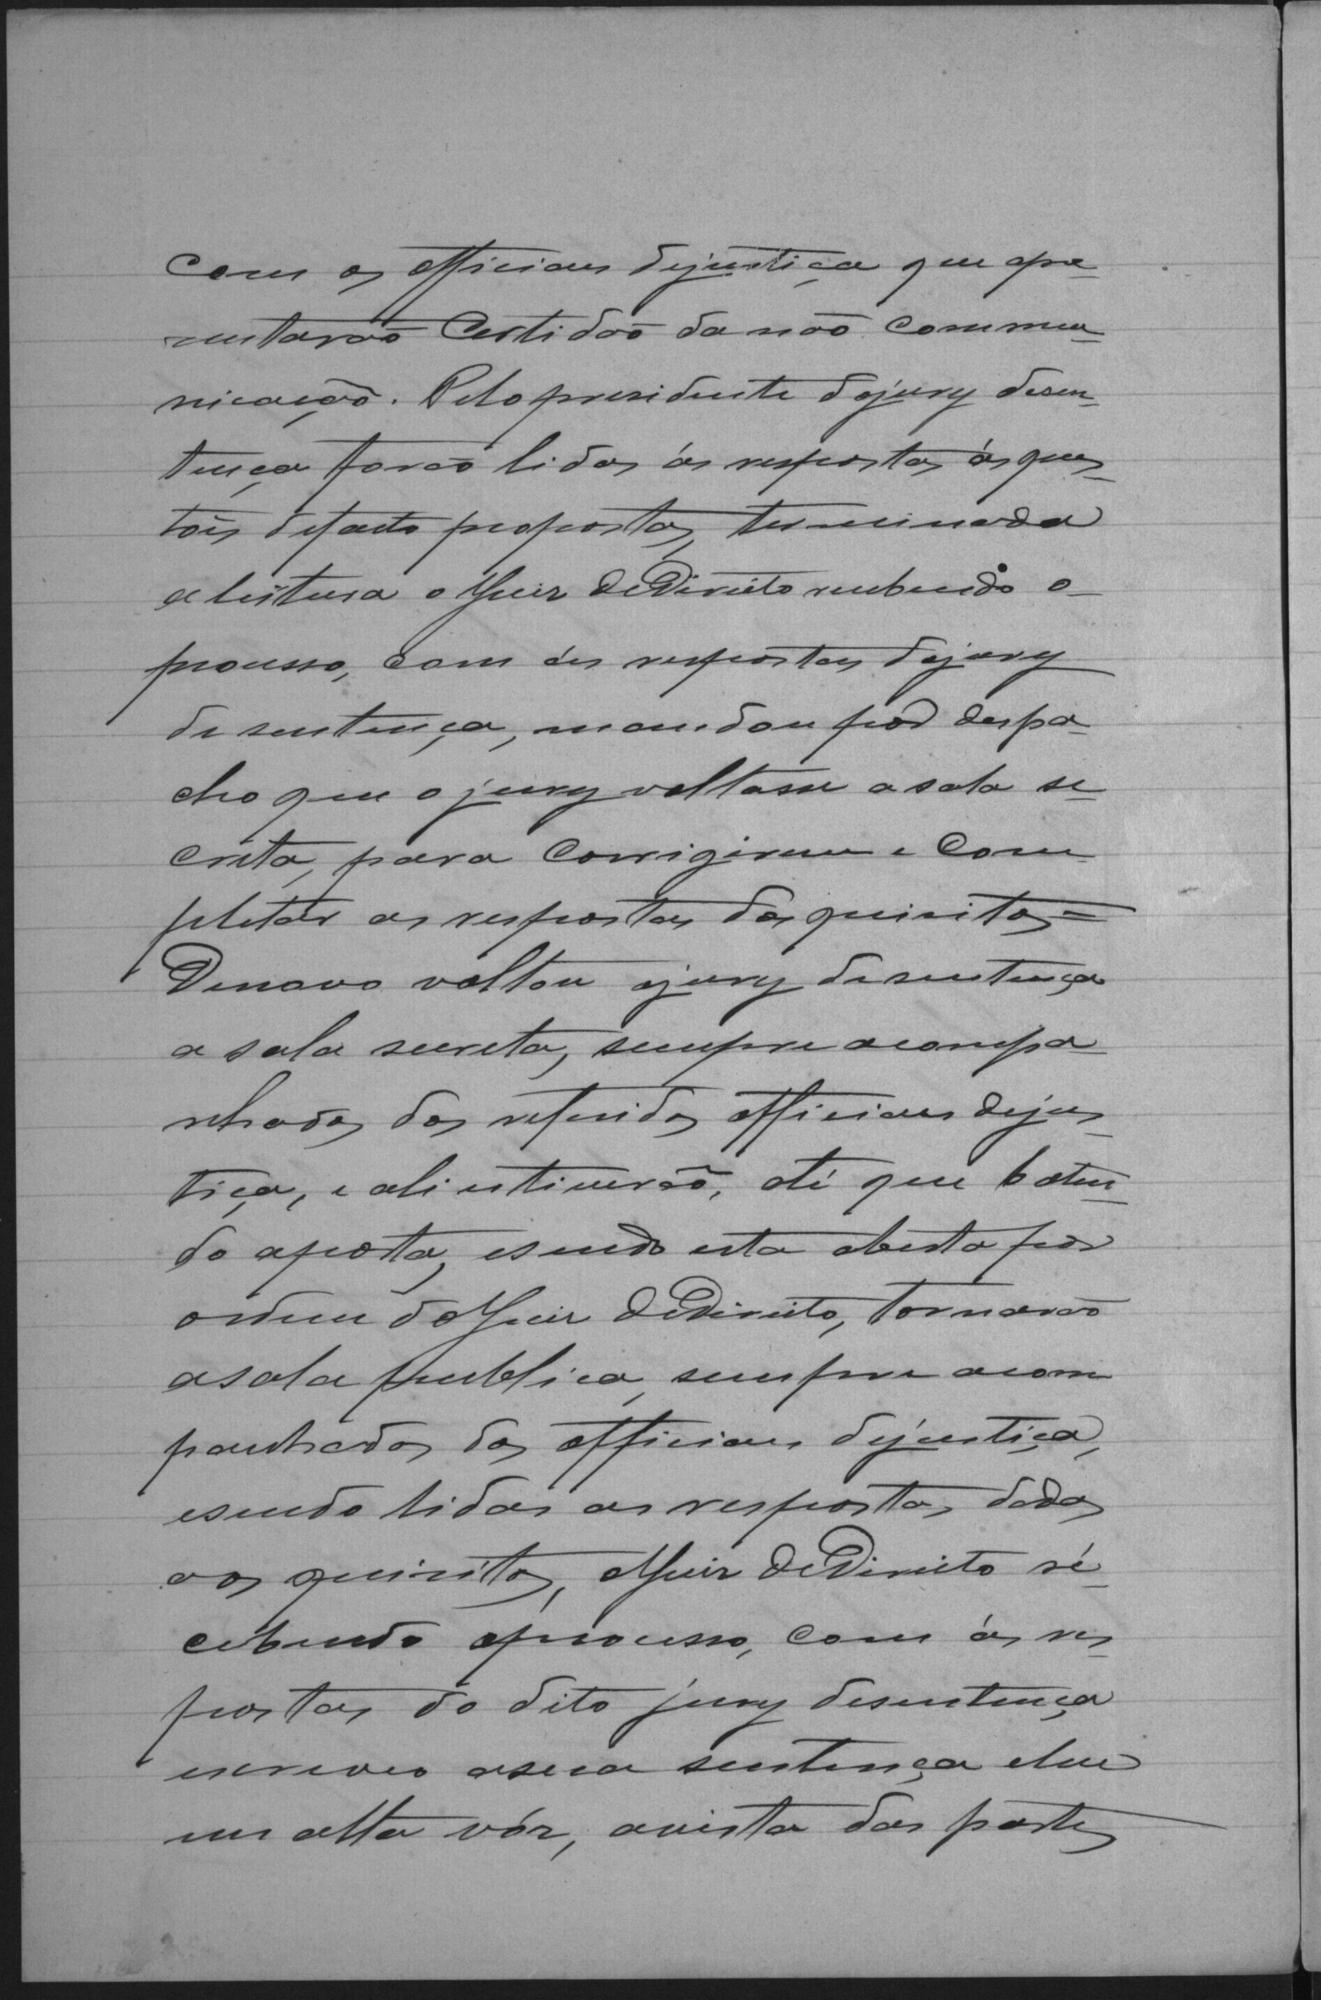 com os officiaes dejustiça que apre-
sentarão Certidão da não commu-
nicação. Pelo presidente dojury desen-
tença forão lidas ás respostas ás ques-
tões defacto propostas, terminada
a leitura o Juiz deDireito recebendo o
processo, com ás respostas dojury
de sentença, mandou por despa-
cho que o jury voltasse a sala se-
creta, para corrigirem e com-
pletar as respostas dos quisitos=
Denovo voltou ojury de sentença
a sala secreta, sempre acompa-
nhados dos referidos officiaes dejus-
tiça, e ali estiverão, até que baten-
do aporta, esendo esta aberta por
ordem doJuiz deDireito, tornarão
asala publica, sempre acom
panhados dos officiaes dejustiça,
esendo lidas as respostas dadas
aos quisitos, oJuiz deDireito re-
cebendo oprocesso, com ás res-
postas do dito jury desentença
escreveo asua sentença eleu
em alta vóz, avista das partes